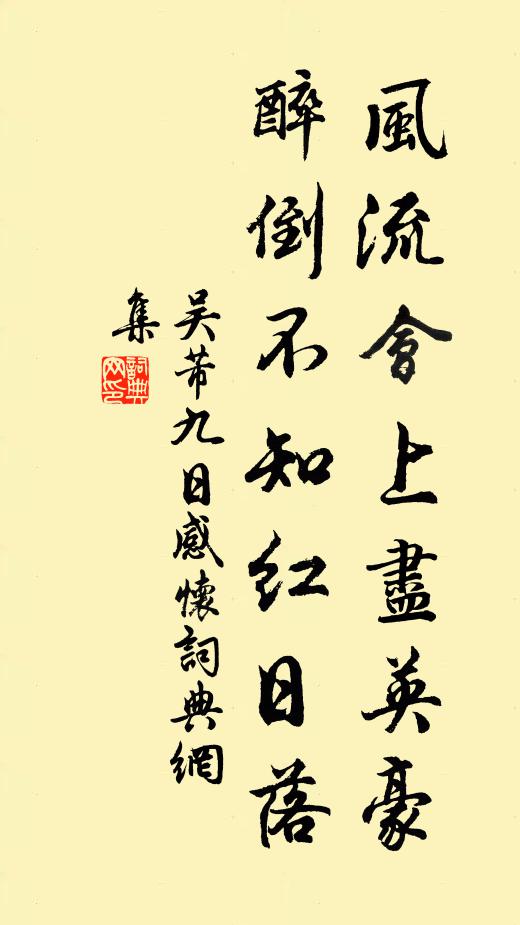 風流會上盡英豪
醉倒不知紅日落
吴芾九日感懷詞典網
集
詞典
网印